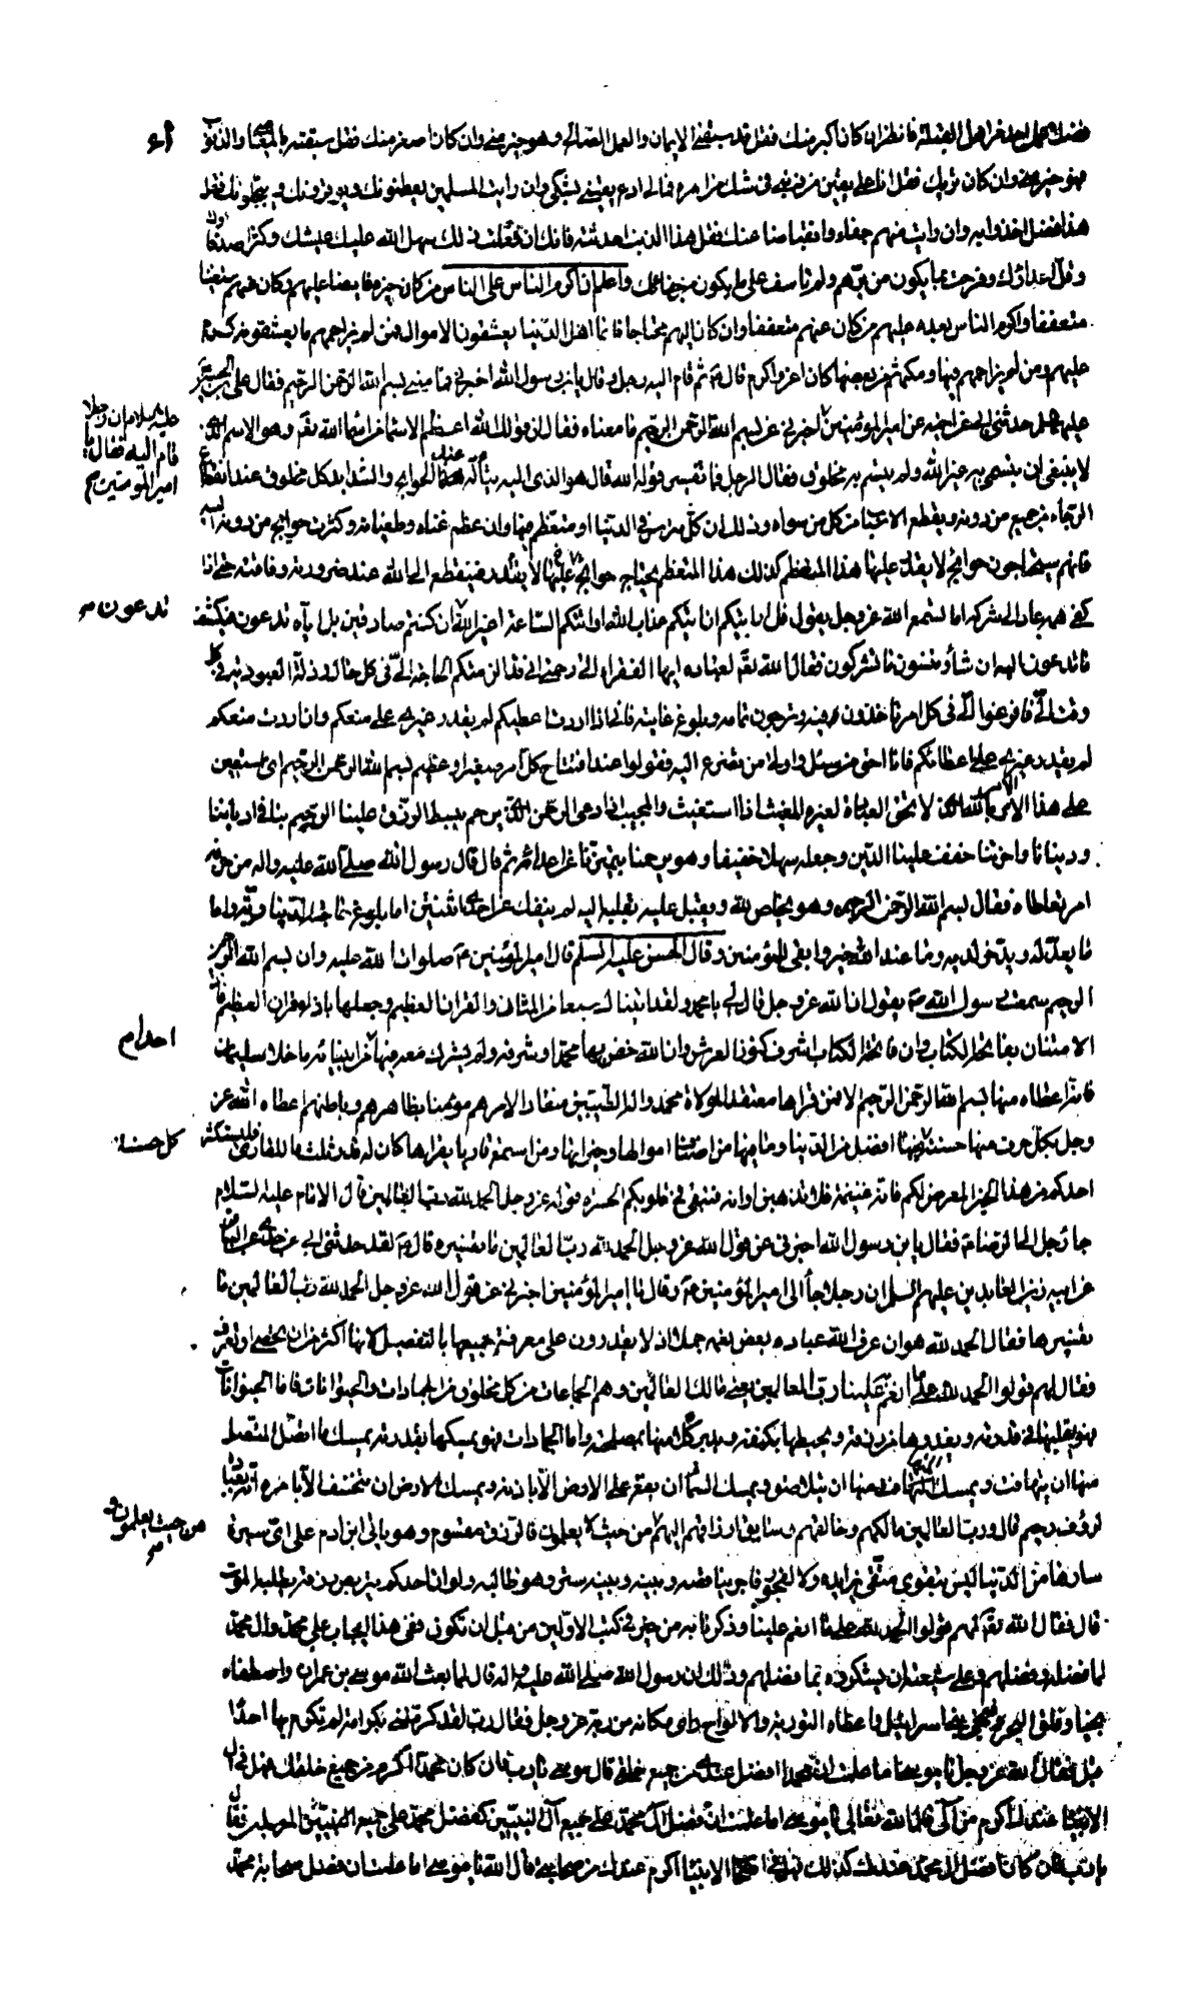 فضلا على احد من اهل القبلة فانظر ان كان اكبر منك فقل قد سبقني بالايمان والعمل الصالح وهو خير مني وان كان اصغر منك فقل سبقته بالمعاصي والذنوب
فهو خير مني وان كان تربك فقل انا على يقين من ذنبي في شك من امره فمالي ادع يقيني بشكي وان رايت المسلمين يعظمونك ويوقرونك ويبجلونك فقل
هذا فضل اخذوا به وان رايت منهم جفاء وانقباضا عنك فقل هذا الذنب احدثته فانك ان فعلت ذلك سهل الله عليك عيشك وكثر اصدقاؤك
وقل اعداؤك وفرحت بما يكون من برهم ولم تاسف على ما يكون من جفائهم واعلم ان اكرم الناس على الناس من كان خيره فايضا عليهم وكان عنهم مستغنيا
متعففا واكرم الناس بعده عليهم من كان عنهم متعففا وان كان اليهم محتاجا فانما اهل الدنيا يعشقون الاموال فمن لم يزاحمهم فيما يعشقونه كرم
عليهم ومن لم يزاحمهم فيها ومكنهم من بعضها كان اعز واكرم قال ثم قام اليه رجل وقال يا بن رسول الله اخبرني ما معنى بسم الله الرحمن الرحيم فقال علي بن الحسين
عليهما حدثني ابي عن اخيه عن امير المؤمنين اخبرني عن بسم الله الرحمن الرحيم ما معناه فقال ان قولك الله اعظم الاسماء من اسماء الله تع وهو الاسم الذي
لا ينبغي ان يتسمى به غير الله ولم يتسم به مخلوق فقال الرجل فما تفسير قوله الله قال هو الذي اليه يتاله عند الحوائج والشدايد كل مخلوق عند انقطاع
الرجاء من جميع من دونه وتقطع الاسباب من كل من سواه وذلك ان كل مترئس في الدنيا او متعظم فيها وان عظم غناه وطغيانه وكثرت حوائج من دونه اليه
فانهم سيحتاجون حوائج لا يقدر عليها هذا المتعظم كذلك هذا المتعظم يحتاج حوائج لا يقدر عليها فينقطع الى الله عند ضرورته وفاقته حتى اذا
كفى همه عاد الى شركه اما تسمع الله عز وجل يقول قل ارايتكم ان اتيكم عذاب الله او اتتكم الساعة اغير الله ان كنتم صادقين بل اياه تدعون فيكشف
ما تدعون اليه ان شاء وتنسون ما تشركون فقال الله تع لعباده ايها الفقراء الى رحمتي اني قد الزمتكم الحاجة الي في كل حال وذلة العبودية في كل
وقت فالي فافزعوا في كل امر تاخذون فيه وترجون تمامه وبلوغ غايته فاني اذا اردت اعطيكم لم يقدر غيري على منعكم وان اردت منعكم
لم يقدر غيري على اعطائكم فانا احق من سئل واولى من تضرع اليه فقولوا عند افتتاح كل امر صغير او عظيم بسم الله الرحمن الرحيم اي استعين
على هذا الامر بالله الذي لا تحق العبادة لغيره المغيث اذا استغيث والمجيب اذا دعي الرحمن الذي يرحم ببسط الرزق علينا الرحيم بنا في ادياننا
ودنيانا واخرتنا خفف علينا الدين وجعله سهلا خفيفا وهو يرحمنا بتميزنا من اعدائه ثم قال قال رسول الله صلى الله عليه واله من حزنه
امر تعاطاه فقال بسم الله الرحمن الرحيم وهو يخلص لله ويقبل عليه بقلبه اليه لم ينفك عن احدى اثنتين اما بلوغ حاجته الدنيا واما
ما يعد له ويدخر لديه وما عند الله خير وابقى للمؤمنين وقال الحسن عليه السلم قال امير المؤمنين صلوات الله عليه وان بسم الله الرحمن
الرحيم سمعت رسول الله يقول ان الله عز وجل قال لي يا محمد ولقد اتيناك سبعا من المثاني والقران العظيم وجعلها باذاء القران العظيم
الامتنان بفاتحة الكتاب وان فاتحة الكتاب اشرف كنوز العرش وان الله خص بها محمدا وشرفه ولم يشرك معه فيها احدا من انبيائه ما خلا سليمان
فانه اعطاه منها بسم الله الرحمن الرحيم الا فمن قراها معتقدا لموالاة محمد واله الطيبين منقادا لامرهم مؤمنا بظاهرهم وباطنهم اعطاه الله عز
وجل بكل حرف منها حسنة منها افضل من الدنيا وما فيها من اصناف اموالها وخيراتها ومن استمع قاريا يقراها كان له قدر ثلث ما للقاري فليستكثر
احدكم من هذا الخير المعرض لكم فانه غنيمة فلا يذهبن اوانه فتبقى في قلوبكم الحسرة قوله عز وجل الحمد لله رب العالمين قال الامام عليه السلام
جاء رجل الى الرضا فقال يا بن رسول الله اخبرني عن قول الله عز وجل الحمد لله رب العالمين ما تفسيره قال لقد حدثني ابي عن جدي عن الباقر
عن ابيه زين العابدين عليهم السلم ان رجلا جاء الى امير المؤمنين وقال يا امير المؤمنين اخبرني عن قول الله عز وجل الحمد لله رب العالمين ما
تفسيرها فقال الحمد لله هو ان عرف الله عباده بعض نعمه جملا اذ لا يقدرون على معرفة جميعها بالتفصيل لانها اكثر من ان تحصى او تعرف
فقال لهم قولوا الحمد لله على ما انعم علينا رب العالمين يعني مالك العالمين وهم الجماعات من كل مخلوق من الجمادات والحيوانات فاما الحيوانات
فهو يقلبها في قدرته ويغذوها من رزقه ويحيطها بكنفه ويدبر كلا منها بمصلحته واما الجمادات فهو يمسكها بقدرته يمسك ما اتصل المتصل
منها ان يتهافت ويمسك المتهافت منها ان يتلاصق ويمسك السماء ان تقع على الارض الا باذنه ويمسك الارض ان تنخسف الا بامره انه بعباده
لرؤف رحيم قال ورب العالمين مالكهم وخالقهم وسايق ارزاقهم اليهم من حيث لا يعلمون فالرزق مقسوم وهو ياتي ابن ادم على اي سيرة
سارها من الدنيا ليس بتقوى متقي بزايده ولا لفجور فاجر بناقصه وبينه وبينه ستر وهو طالبه ولو ان احدكم يتربص رزقه لطلبه الموت
قال فقال الله تع لهم قولوا الحمد لله على ما انعم علينا وذكرنا به من خير في كتب الاولين من قبل ان نكون ففي هذا ايجاب على محمد وال محمد
لما فضله وفضلهم وعلى شيعته ان يشكروه بما فضلهم وذلك ان رسول الله صلى الله عليه واله قال لما بعث الله موسى بن عمران واصطفاه
نجيا وفلق البحر فنجى بني اسرائيل واعطاه التورية والالواح راى مكانه من ربه عز وجل فقال رب لقد كرمتني بكرامة لم تكرم بها احدا
قبلي فقال الله عز وجل يا موسى اما علمت ان محمدا افضل عندي من جميع خلقي قال موسى يا رب فان كان محمد اكرم من جميع خلقك فهل في ال
الانبياء عندك اكرم من الي قال الله تعالى يا موسى اما علمت ان فضل ال محمد على جميع ال النبيين كفضل محمد على جميع المرسلين فقال
يا رب فان كان فضل ال محمد عندك كذلك فهل في صحابة الانبياء اكرم عندك من صحابتي قال الله يا موسى اما علمت ان فضل صحابة محمد
عليه السلام ان رجلا
قام اليه فقال يا
امير المؤمنين
تدعون
احدا م
كل حسنة
من حيث يعلمون